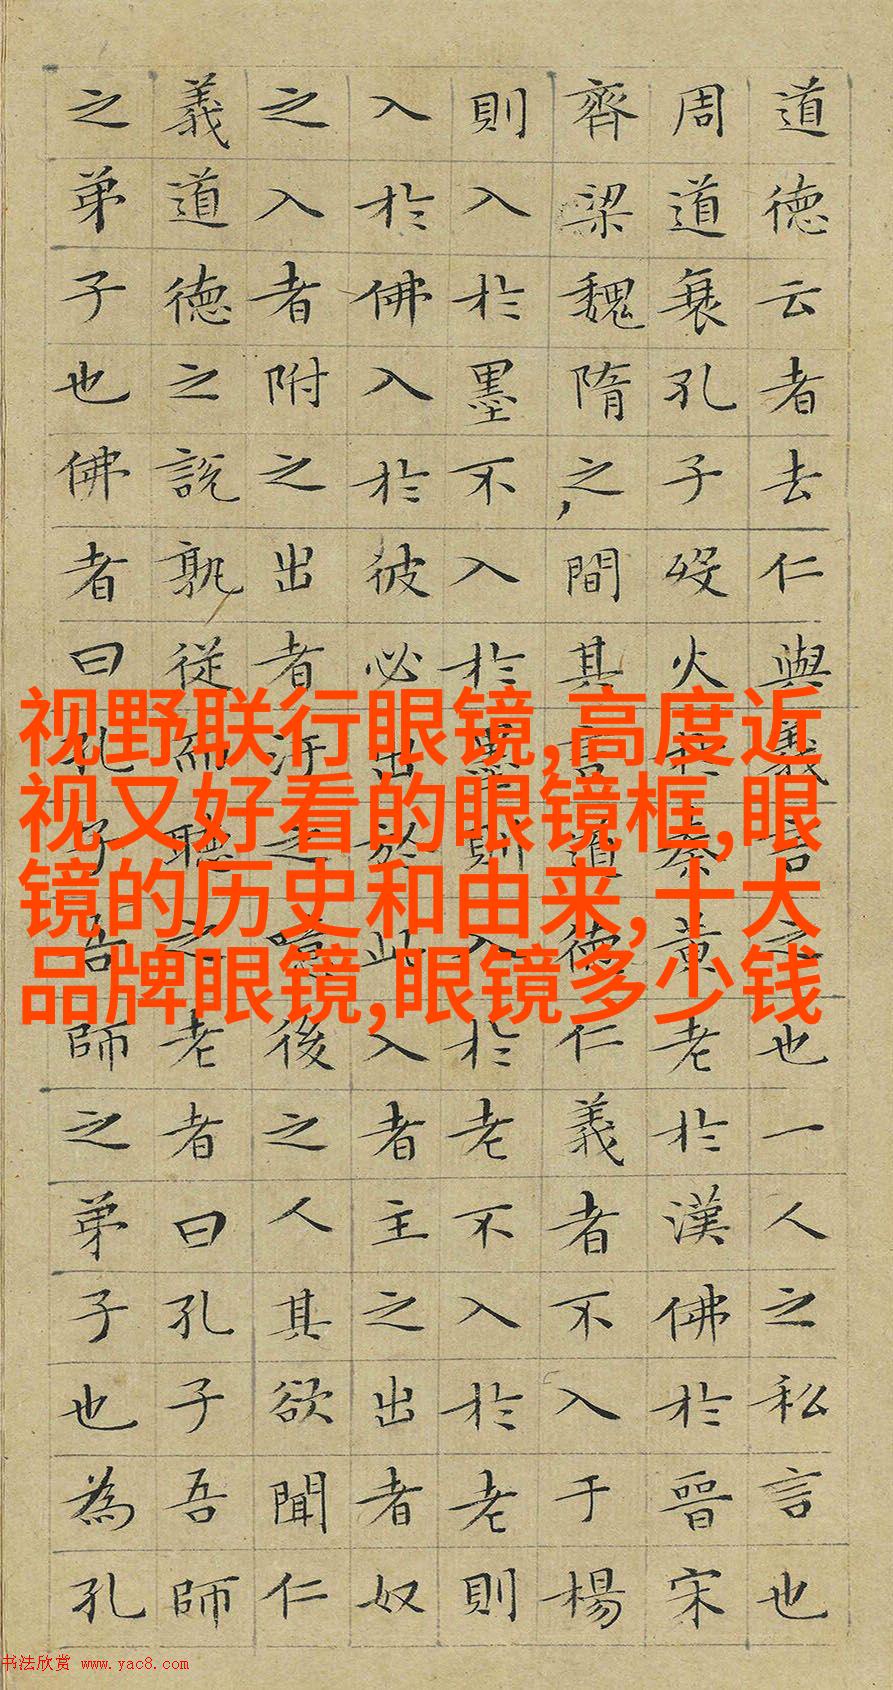 道德云者去仁與義言之也一人之私言也
周道衰孔子歿火於秦黄老於漢佛於晉宋
齊梁魏隋之間其言道德仁義者不入于楊
則入於墨不入於墨則入於老不入於老則
入於佛入於彼必出於此入者主之出者奴
之入者附之出者汙之噫後之人其欲聞仁
義道德之說孰從而聽之老者曰孔子吾師
之弟子也佛者曰孔子吾師之弟子也為孔
视野联行眼镜,高度近
视又好看的眼镜框,眼
镜的历史和由来,十大
品牌眼镜,眼镜多少钱
书法欣赏 www.yac8.com